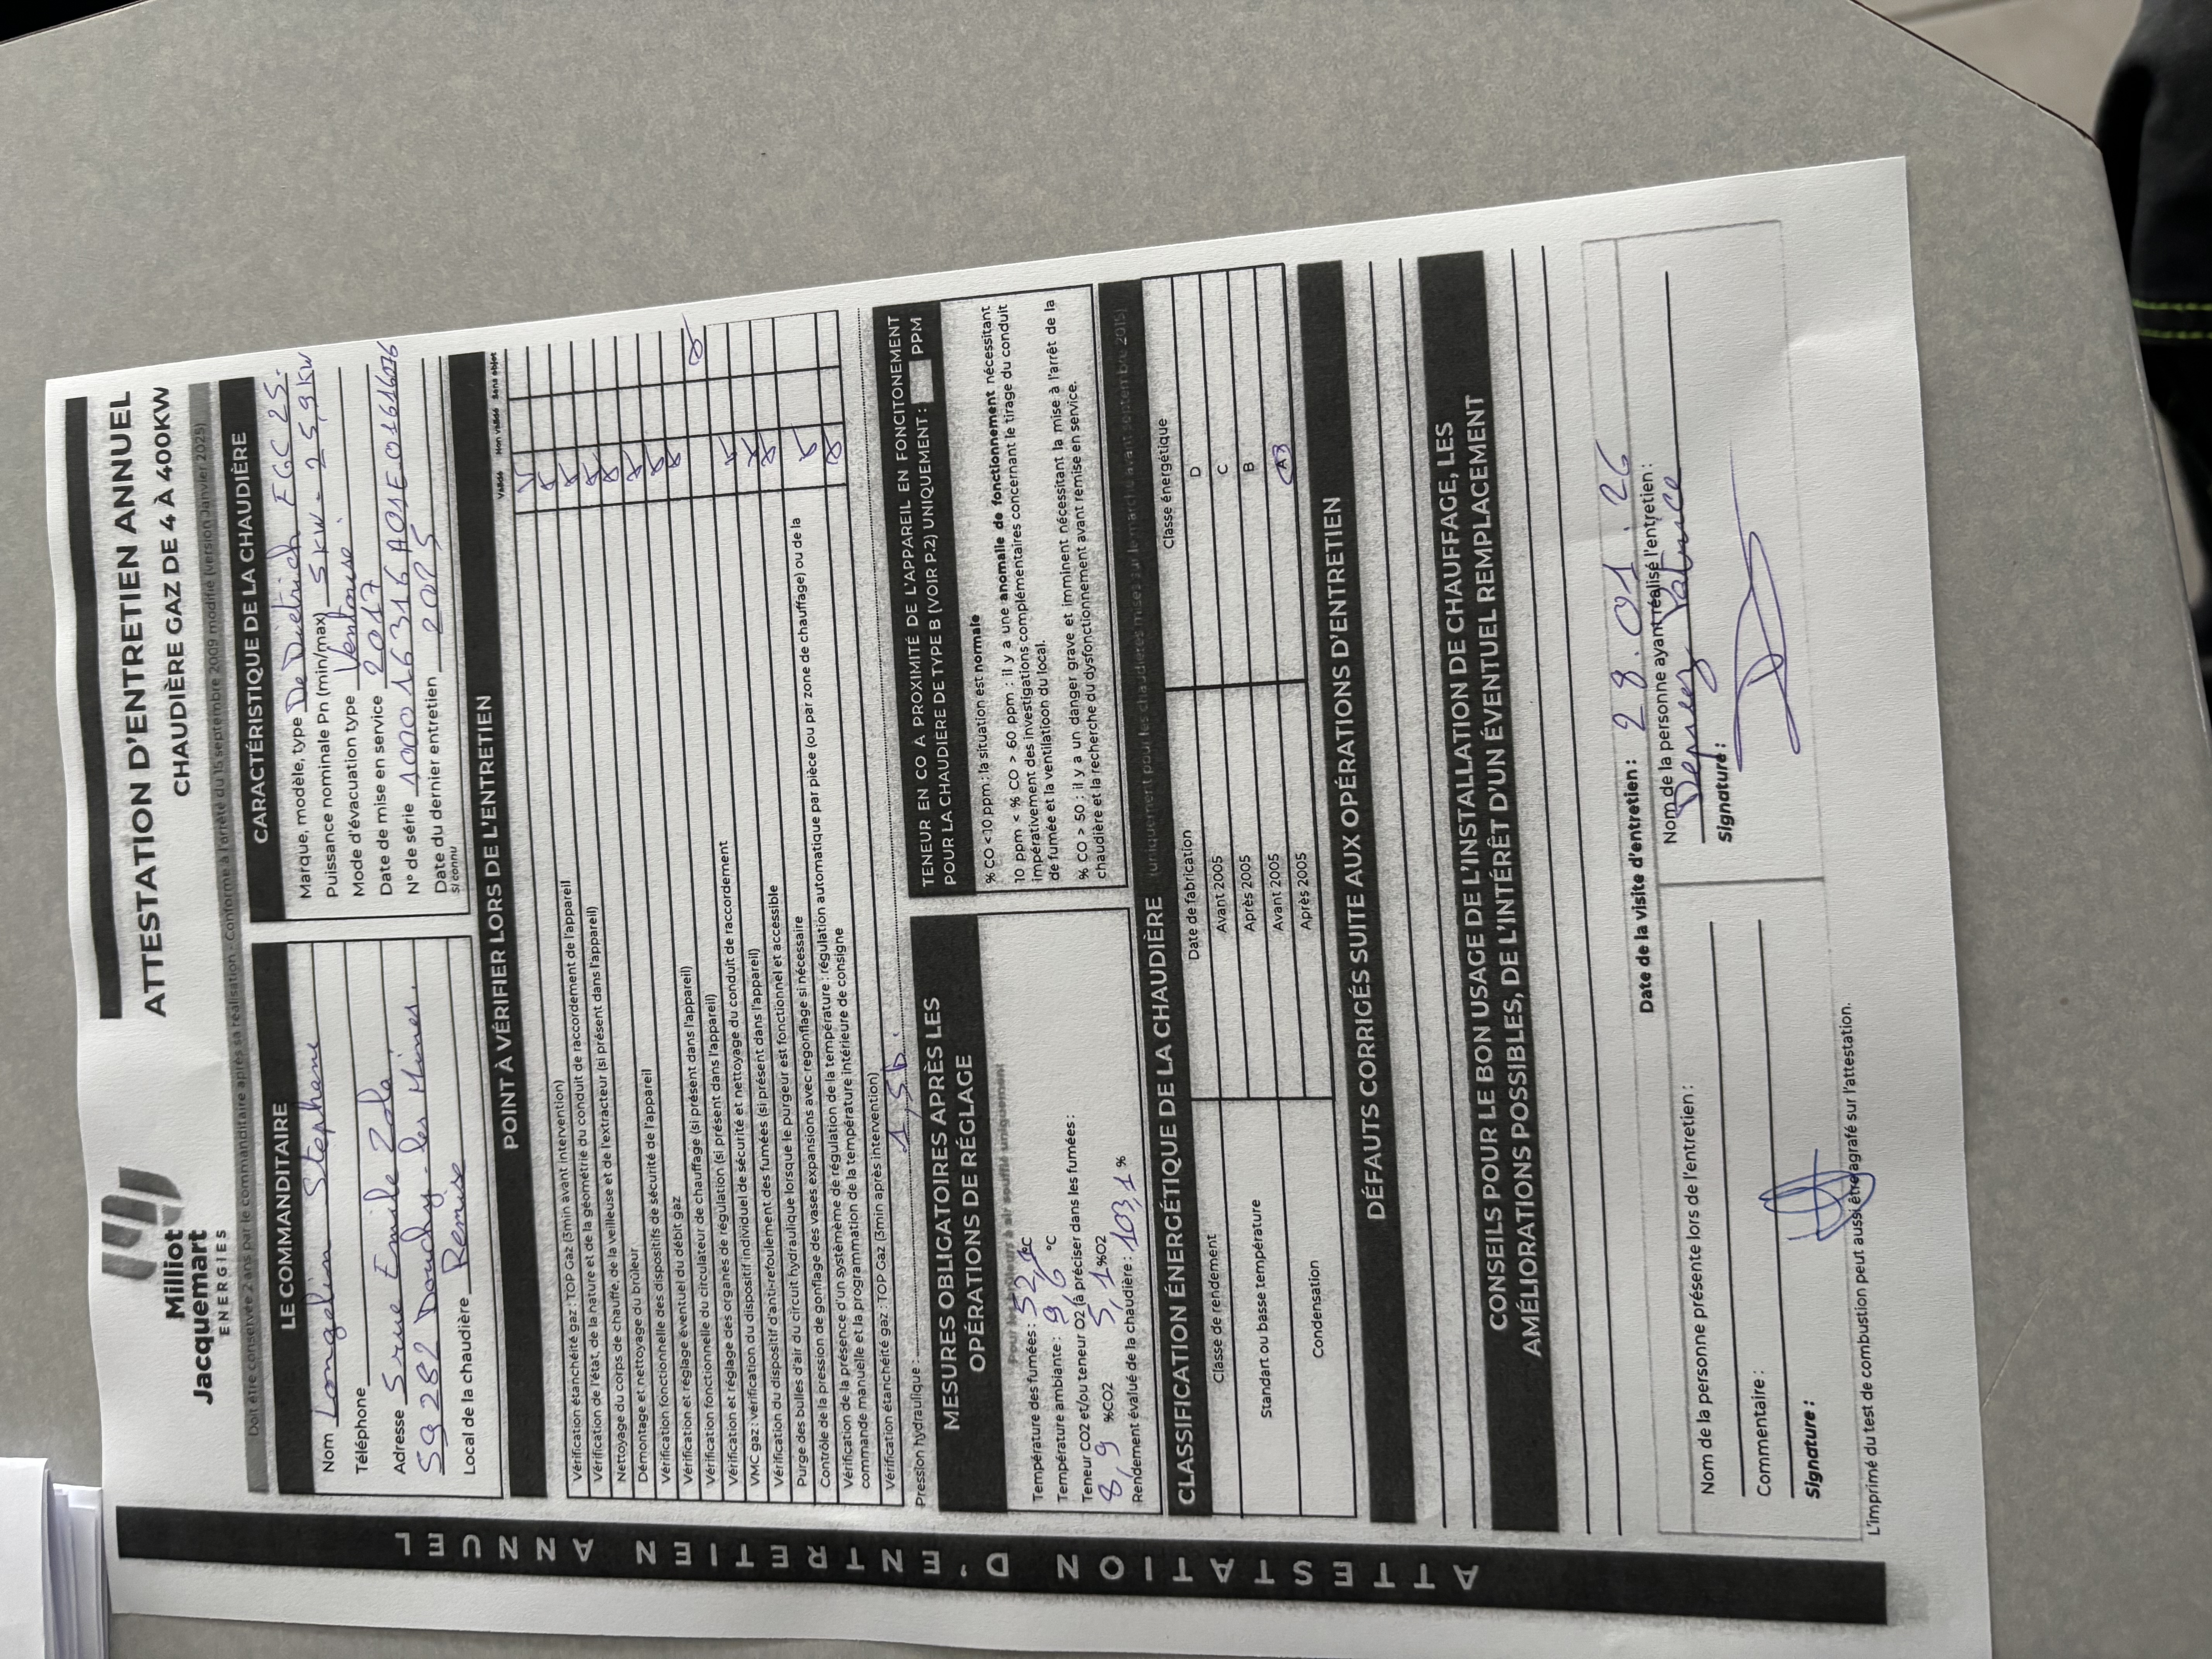 Milliot
Jacquemart
ENERGIES
ATTESTATION D'ENTRETIEN ANNUEL
CHAUDIÈRE GAZ DE 4 À 400KW
Doit être conservée 2 ans par le commanditaire après sa réalisation - Conforme à l'arrêté du 15 septembre 2009 modifié (version Janvier 2025)
LE COMMANDITAIRE
Nom Longelin Stephane
Téléphone
Adresse 5 rue Emile Zola
59282 Douchy-les Mines.
Local de la chaudière Remise
CARACTÉRISTIQUE DE LA CHAUDIÈRE
Marque, modèle, type De Dietrich EGC 25.
Puissance nominale Pn (min/max) 5kw - 25,9kw
Mode d'évacuation type Ventouse.
Date de mise en service 2017
N° de série
Date du dernier entretien
si connu
POINT À VÉRIFIER LORS DE L'ENTRETIEN
Validé Non validé Sans objet
Vérification étanchéité gaz : TOP Gaz (3min avant intervention)
Vérification de l'état, de la nature et de la géométrie du conduit de raccordement de l'appareil
Nettoyage du corps de chauffe, de la veilleuse et de l'extracteur (si présent dans l'appareil)
Démontage et nettoyage du brûleur
Vérification fonctionnelle des dispositifs de sécurité de l'appareil
Vérification et réglage éventuel du débit gaz
Vérification fonctionnelle du circulateur de chauffage (si présent dans l'appareil)
Vérification et réglage des organes de régulation (si présent dans l'appareil)
VMC gaz : vérification du dispositif individuel de sécurité et nettoyage du conduit de raccordement
Vérification du dispositif d'anti-refoulement des fumées (si présent dans l'appareil)
Purge des bulles d'air du circuit hydraulique lorsque le purgeur est fonctionnel et accessible
Contrôle de la pression de gonflage des vases expansions avec regonflage si nécessaire
Vérification de la présence d'un système de régulation de la température : régulation automatique par pièce (ou par zone de chauffage) ou de la
commande manuelle et la programmation de la température intérieure de consigne
Vérification étanchéité gaz : TOP Gaz (3min après intervention)
Pression hydraulique : 1,5b.
MESURES OBLIGATOIRES APRÈS LES
OPÉRATIONS DE RÉGLAGE
Pour les brûleurs à air soufflé uniquement
Température des fumées : °C
Température ambiante : 9,6 °C
Teneur CO2 et/ou teneur O2 (à préciser dans les fumées :
8,9 %CO2 5,1 %O2
Rendement évalué de la chaudière : 103,1 %
TENEUR EN CO A PROXIMITÉ DE L'APPAREIL EN FONCITONEMENT
POUR LA CHAUDIÈRE DE TYPE B (VOIR P.2) UNIQUEMENT : PPM
% CO < 10 ppm : la situation est normale
10 ppm < % CO > 60 ppm : il y a une anomalie de fonctionnement nécessitant
impérativement des investigations complémentaires concernant le tirage du conduit
de fumée et la ventilatioon du local.
% CO > 50 : il y a un danger grave et imminent nécessitant la mise à l'arrêt de la
chaudière et la recherche du dysfonctionnement avant remise en service.
CLASSIFICATION ÉNERGÉTIQUE DE LA CHAUDIÈRE (uniquement pour les chaudières mises sur le marché avant septembre 2015)
Classe de rendement Date de fabrication Classe énergétique
Standart ou basse température Avant 2005 D
Après 2005 C
Condensation Avant 2005 B
Après 2005 A
DÉFAUTS CORRIGÉS SUITE AUX OPÉRATIONS D'ENTRETIEN
CONSEILS POUR LE BON USAGE DE L'INSTALLATION DE CHAUFFAGE, LES
AMÉLIORATIONS POSSIBLES, DE L'INTÉRÊT D'UN ÉVENTUEL REMPLACEMENT
Date de la visite d'entretien : 28.01.26
Nom de la personne présente lors de l'entretien :
Commentaire :
Signature :
Nom de la personne ayant réalisé l'entretien :
Deprez Patrice
Signature :
L'imprimé du test de combustion peut aussi être agrafé sur l'attestation.
ATTESTATION D'ENTRETIEN ANNUEL